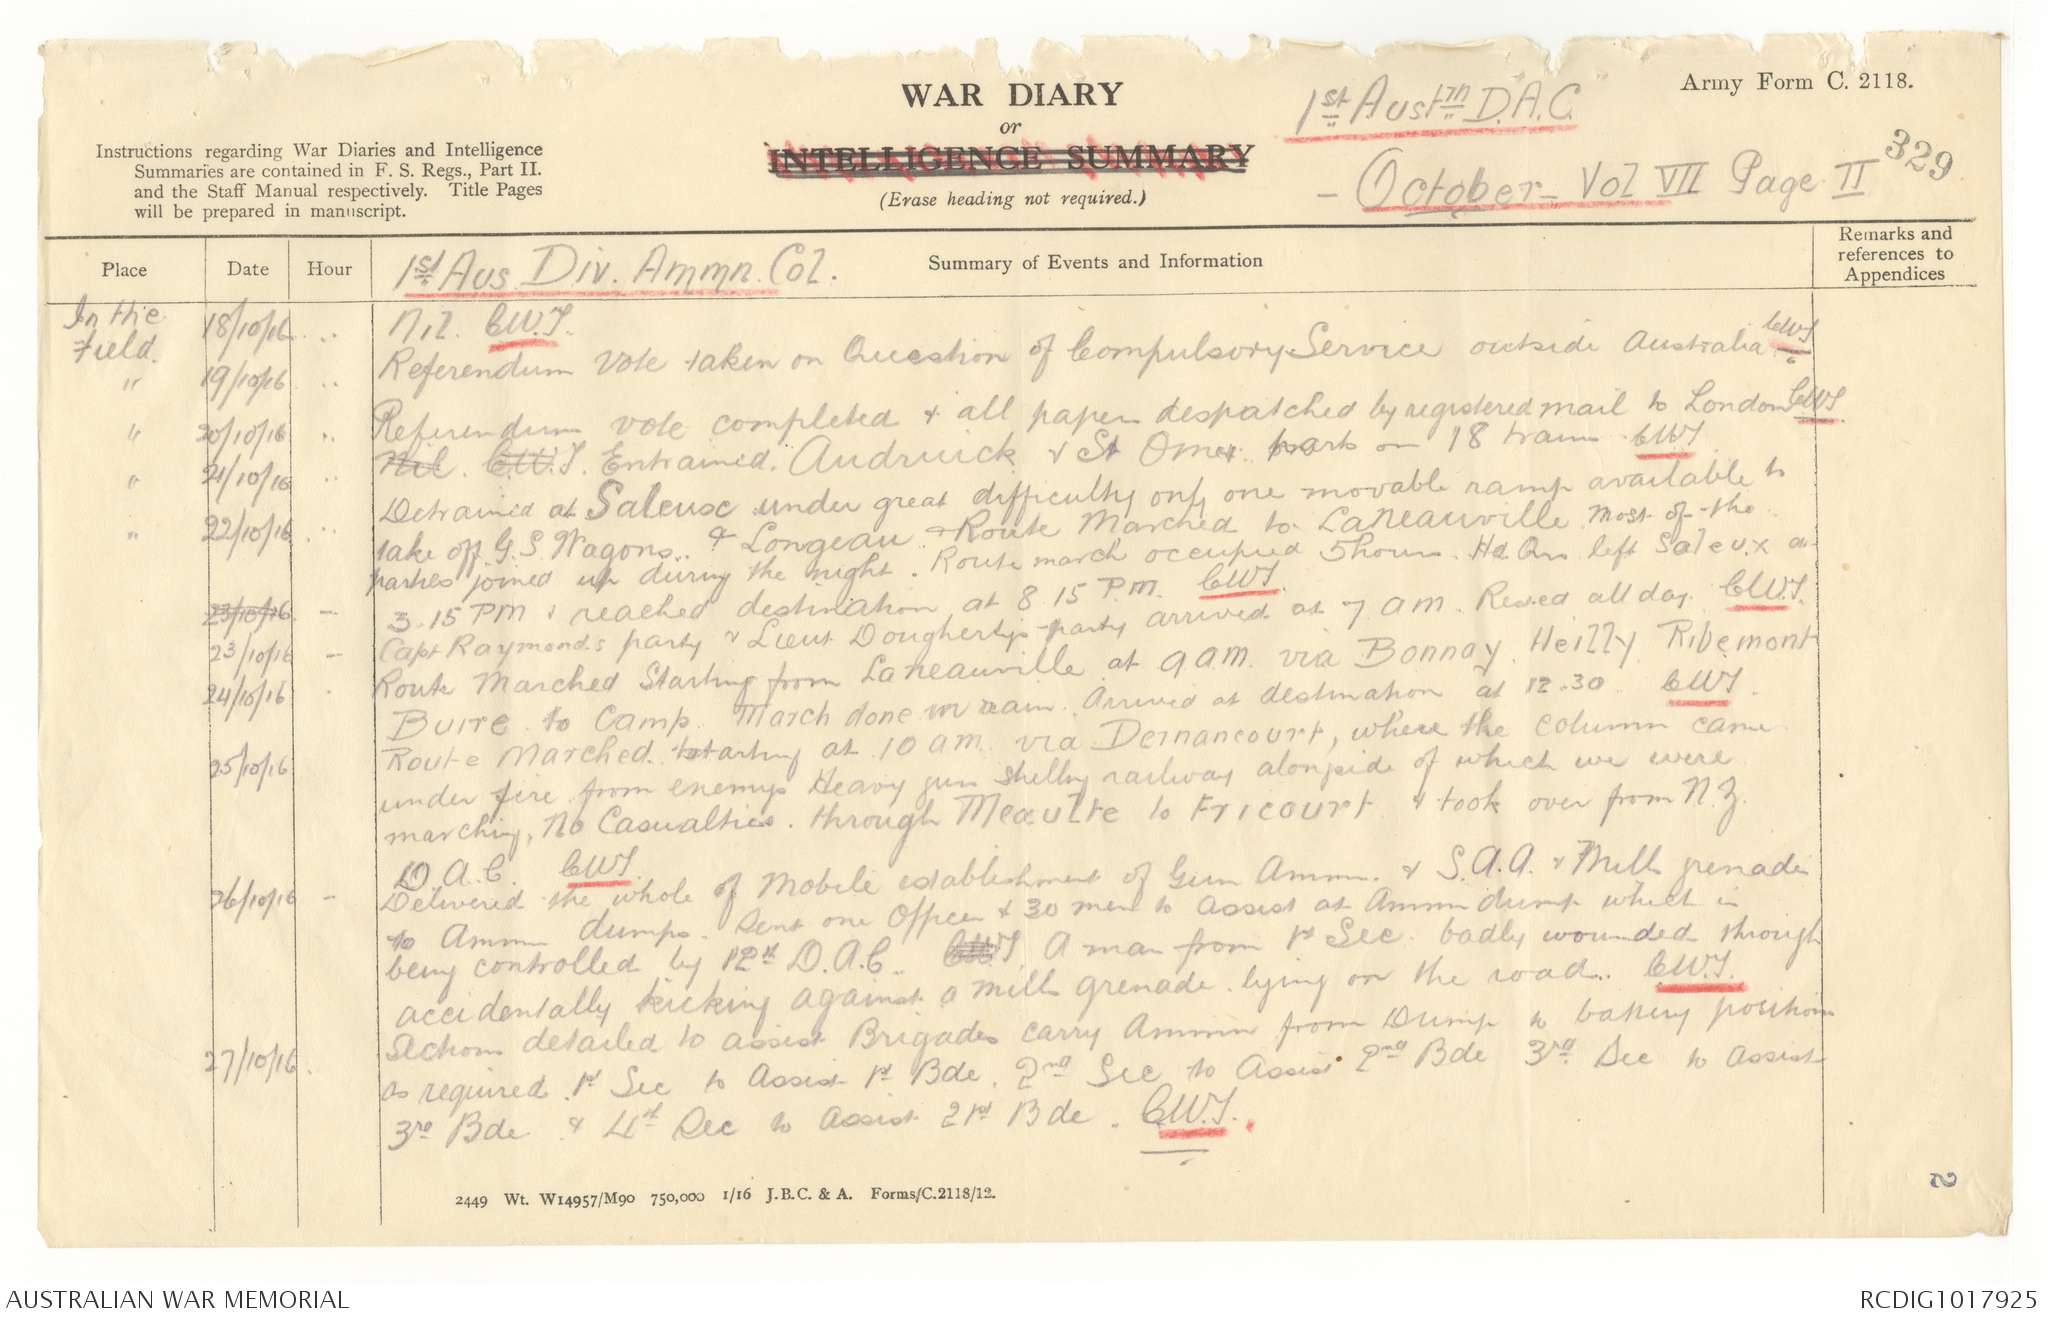 WAR DIARY
or
INTELLIGENCE SUMMARY
(Erase heading not required.)
Army Form C. 2118.
1st Austn D.A.C.
- October - Vol VII Page II
329
Instructions regarding War Diaries and Intelligence
Summaries are contained in F. S. Regs., Part II.
and the Staff Manual respectively. Title Pages
will be prepared in manuscript.
Place Date Hour Summary of Events and Information
Remarks and
references to
Appendices
1st Aus Div. Ammn. Col.
In the Field. 18/10/16 Nil. C.W.T.
" 19/10/16 Referendum Vote taken on Question of Compulsory Service outside Australia CWT
" 20/10/16 Referendum vote completed & all papers despatched by registered mail to London CWT
" 21/10/16 Nil. C.W.T. Entrained. Audruick & St Omer parts on 18 trains. CWT
" 22/10/16 Detrained at Saleuse under great difficulty only one movable ramp available to
take off G.S. Wagons. & Longeau & Route Marched to LaNeauville Most of the
parties joined up during the night. Route march occupied 5 hours. Hd Qrs left Saleux at
23/10/16 - 3.15 PM & reached destination at 8.15 P.M. CWT
23/10/16 - Capt Raymonds party & Lieut Dougherty's party arrived at 7 am. Rested all day. C.W.T.
24/10/16 Route Marched Starting from LaNeauville at 9 a.m. via Bonnay Heilly Ribemont
Buire to Camp. March done in rain. Arrived at destination at 12.30 CWT.
25/10/16 Route Marched starting at 10 am. via Dernancourt, where the column came
under fire from enemys Heavy gun shelling railway alongside of which we were
marching, No Casualties. through Meaulte to Fricourt & took over from N.Z.
D.A.C. CWT.
26/10/16 - Delivered the whole of Mobile establishment of Gun Ammn. & S.A.A. & Mills grenades
to Ammn dumps. Sent one Officer & 30 men to assist at Ammn dump which is
being controlled by 12th D.A.C. CWT A man from 1st Sec. badly wounded through
accidentally kicking against a mills grenade lying on the road. C.W.T.
27/10/16 Sections detailed to assist Brigades carry Ammn from Dump to battery positions
as required. 1st Sec to Assist 1st Bde. 2nd Sec to Assist 2nd Bde 3rd Sec to assist
3rd Bde & 4th Sec to assist 21st Bde. C.W.T.
2449 Wt. W14957/M90 750,000 1/16 J.B.C. & A. Forms/C.2118/12.
2
AUSTRALIAN WAR MEMORIAL
RCDIG1017925